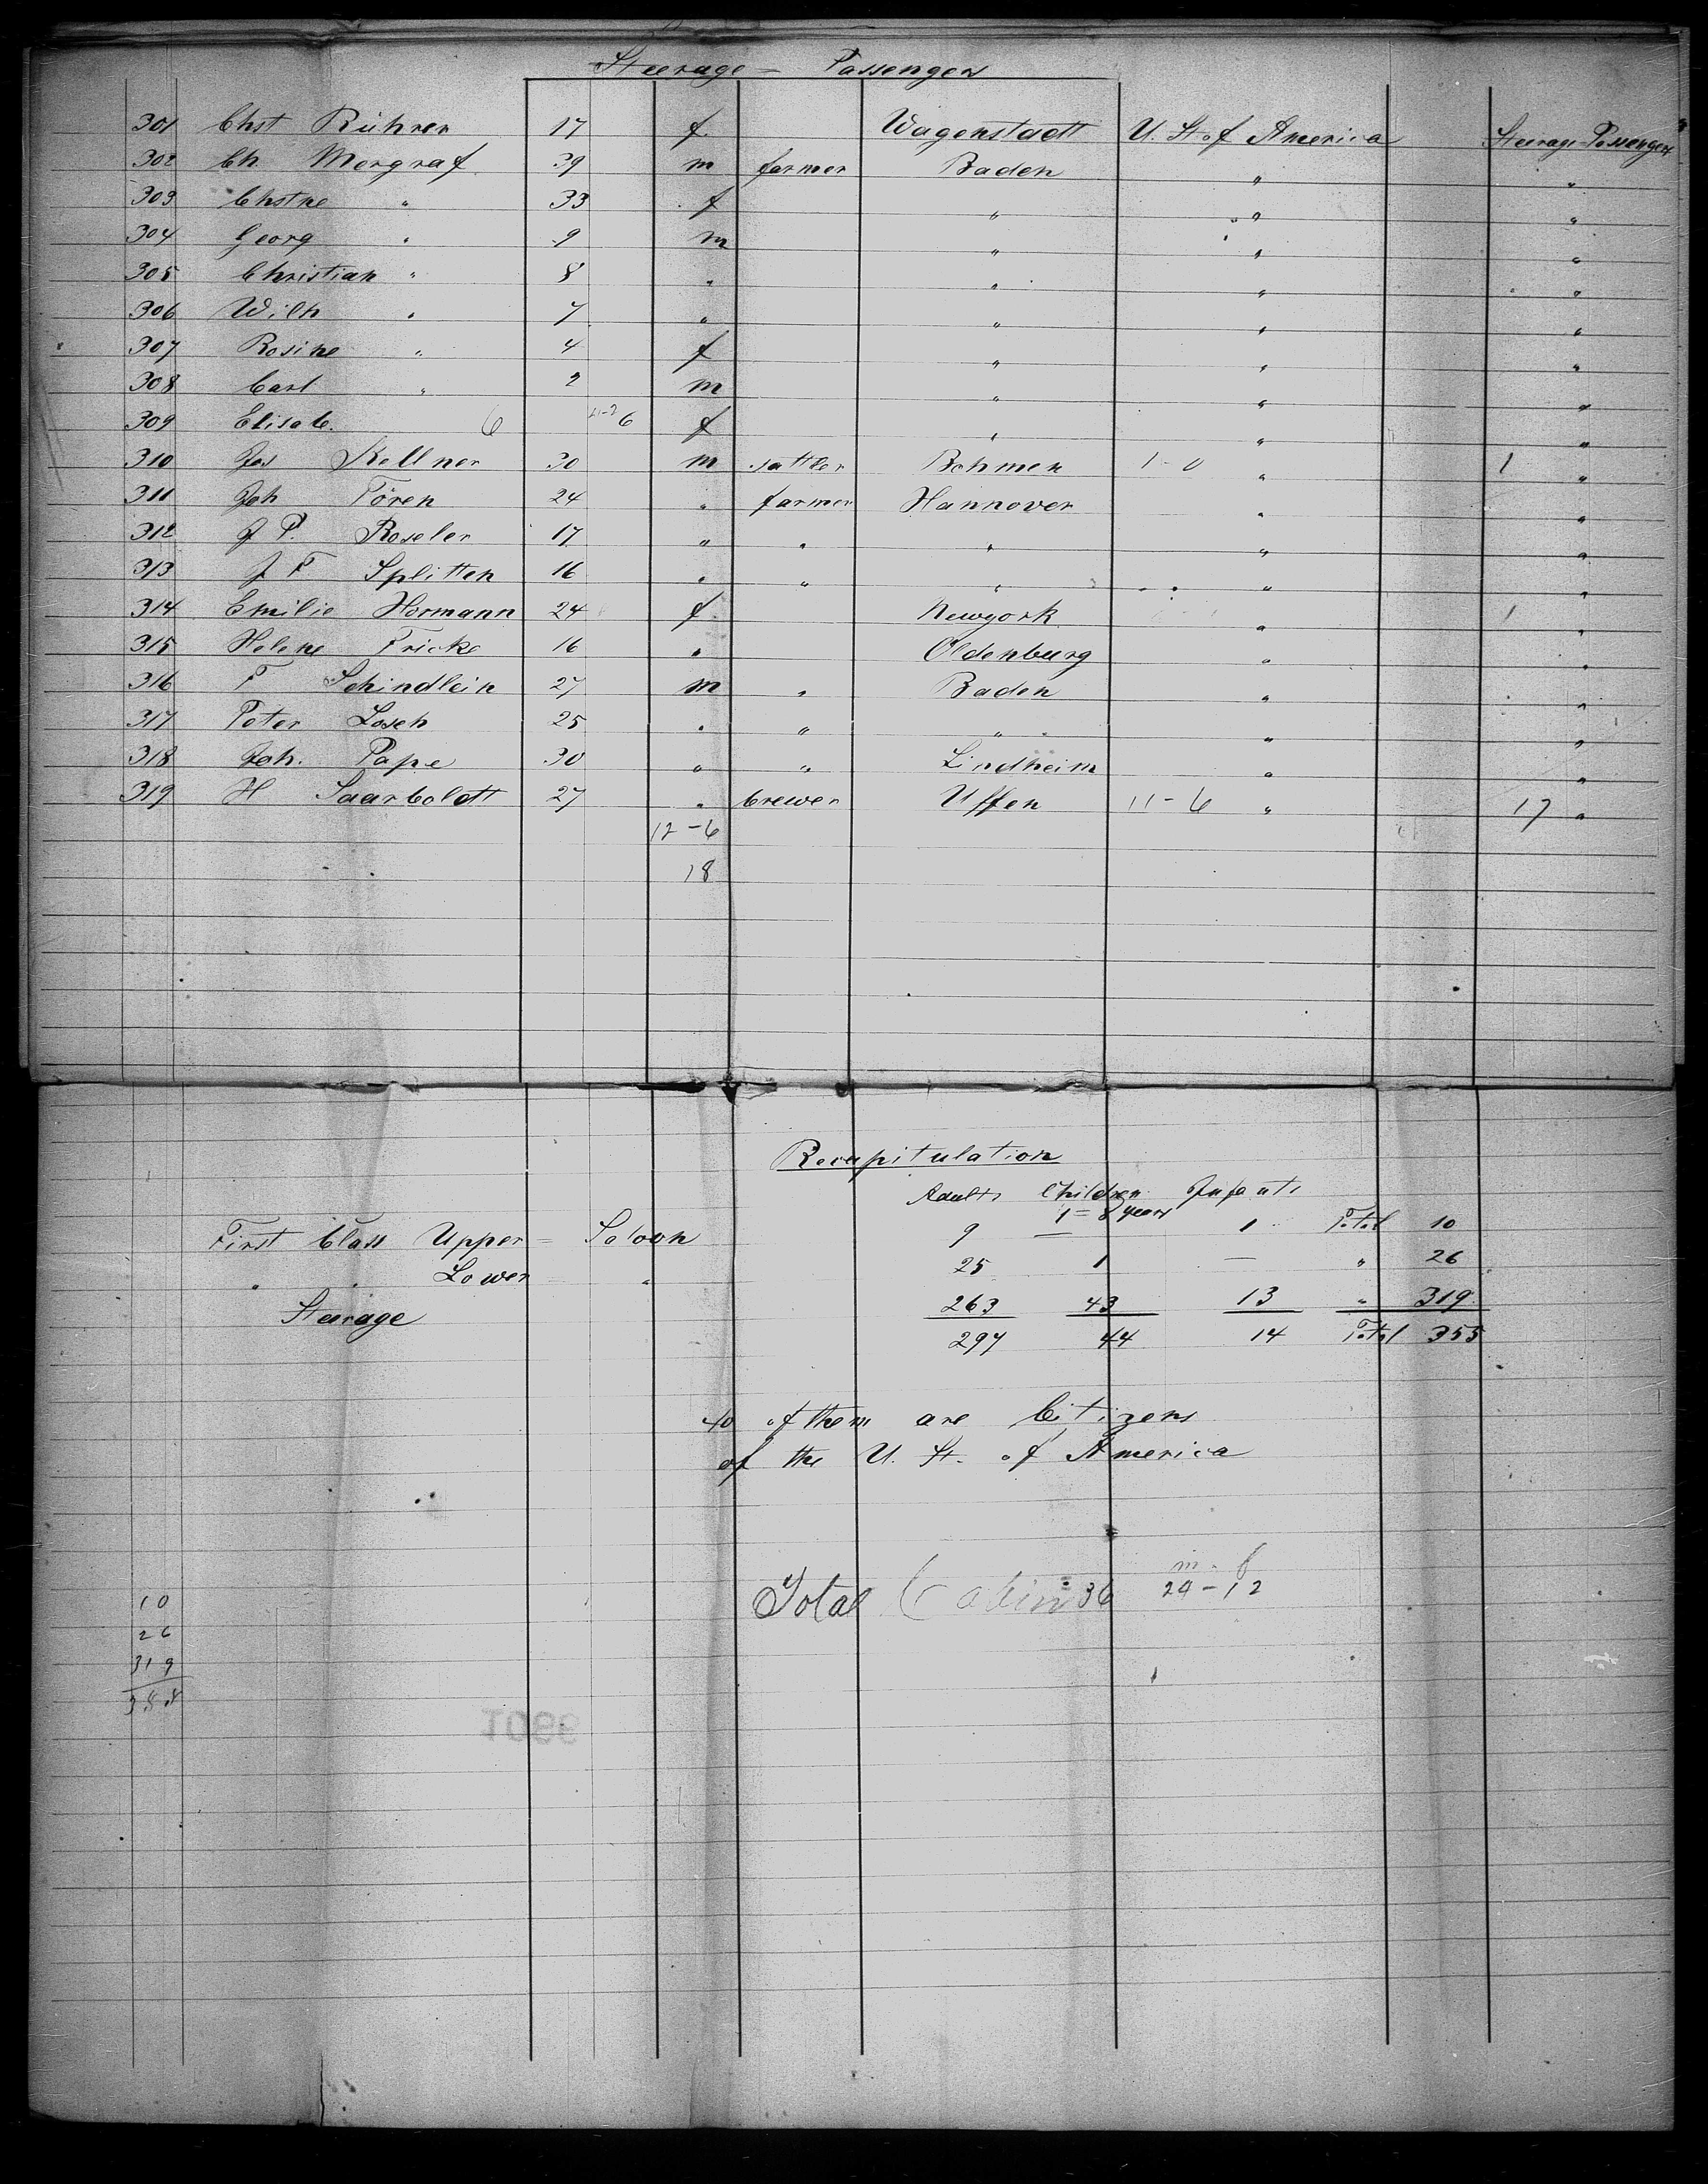 Steerage - Passengers
301 Chst Rührer 17 f Wagenstadt U. St of America Steerage-Passenger
302 Ch Mergraf 39 m farmer Baden " "
303 Chstne " 33 f " " "
304 Georg " 9 m " " "
305 Christian " 8 " " " "
306 Wilh " 7 " " " "
307 Rosine " 4 f " " "
308 Carl " 2 m " " "
309 Elisab. 6 6 f " " "
310 Jos Kellner 30 m sattler Bohmen 1-0 " 1 "
311 Joh Tören 24 " farmer Hannover " "
312 J P. Roseler 17 " " " " "
313 J F Splitten 16 " " " " "
314 Emilie Hormann 24 f Newyork " 1 "
315 Helene Fricke 16 " Oldenburg " "
316 F Schindlein 27 m " Baden " "
317 Peter Losch 25 " " " " "
318 Joh. Pape 30 " " Lindheim " "
319 H Saarboldt 27 " brewer Uffen 11-6 " 17 "
12-6
18
Recapitulation
Adults Children 1=8 years Infants
First Class Upper = Saloon 9 — 1 Total 10
" " Lower " 25 1 — " 26
Steerage 263 43 13 " 319
297 44 14 Total 355
40 of them are Citizens
of the U. St. of America
m - f
Total Cabin 36 24-12
10
26
319
355